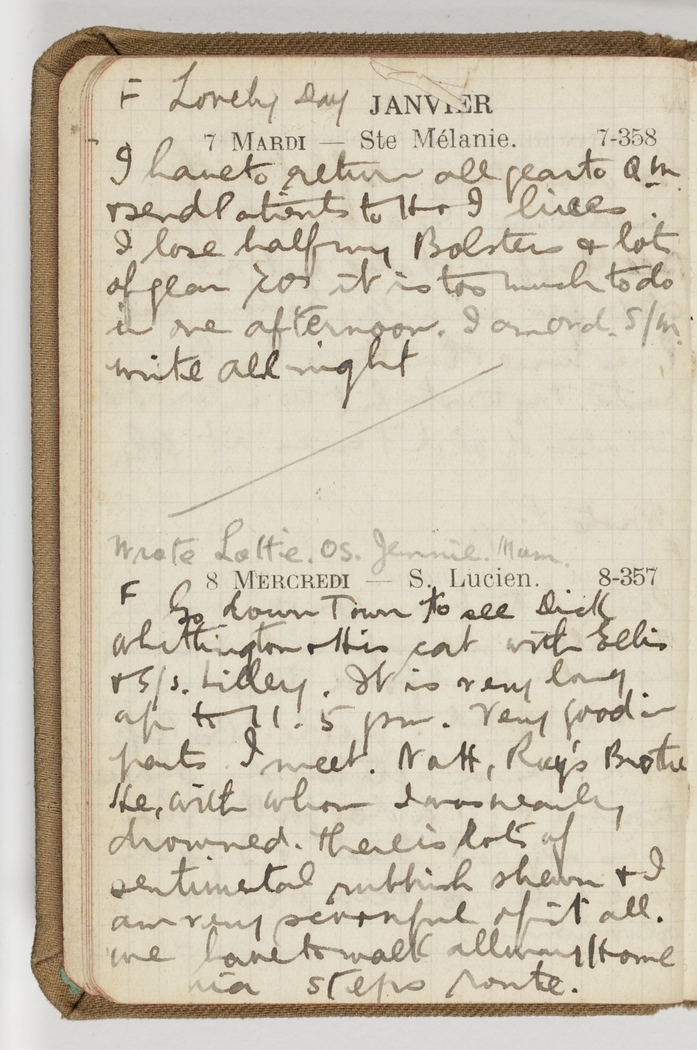 F Lovely Day JANVIER
7 MARDI — Ste Mélanie. 7-358
I have to return all gear to Q.M.
& send Patients to H & I lines.
I lose half my Bolsters & lot
of gear cos it is too much to do
in one afternoon. I am ord. S/M.
write all night
Wrote Lottie. OS. Jennie. Mum.
8 MERCREDI — S. Lucien. 8-357
F Go down Town to see Dick
Whittington & His cat with Ellis
& S/s. Lilley. It is very long
up to 11.5 pm. Very good in
parts I meet. Natt, Ray's Brother
He, with whom I was nearly
drowned. there is lots of
sentimental rubbish shewn & I
am very scornful of it all.
we have to walk all way Home
via steps route.